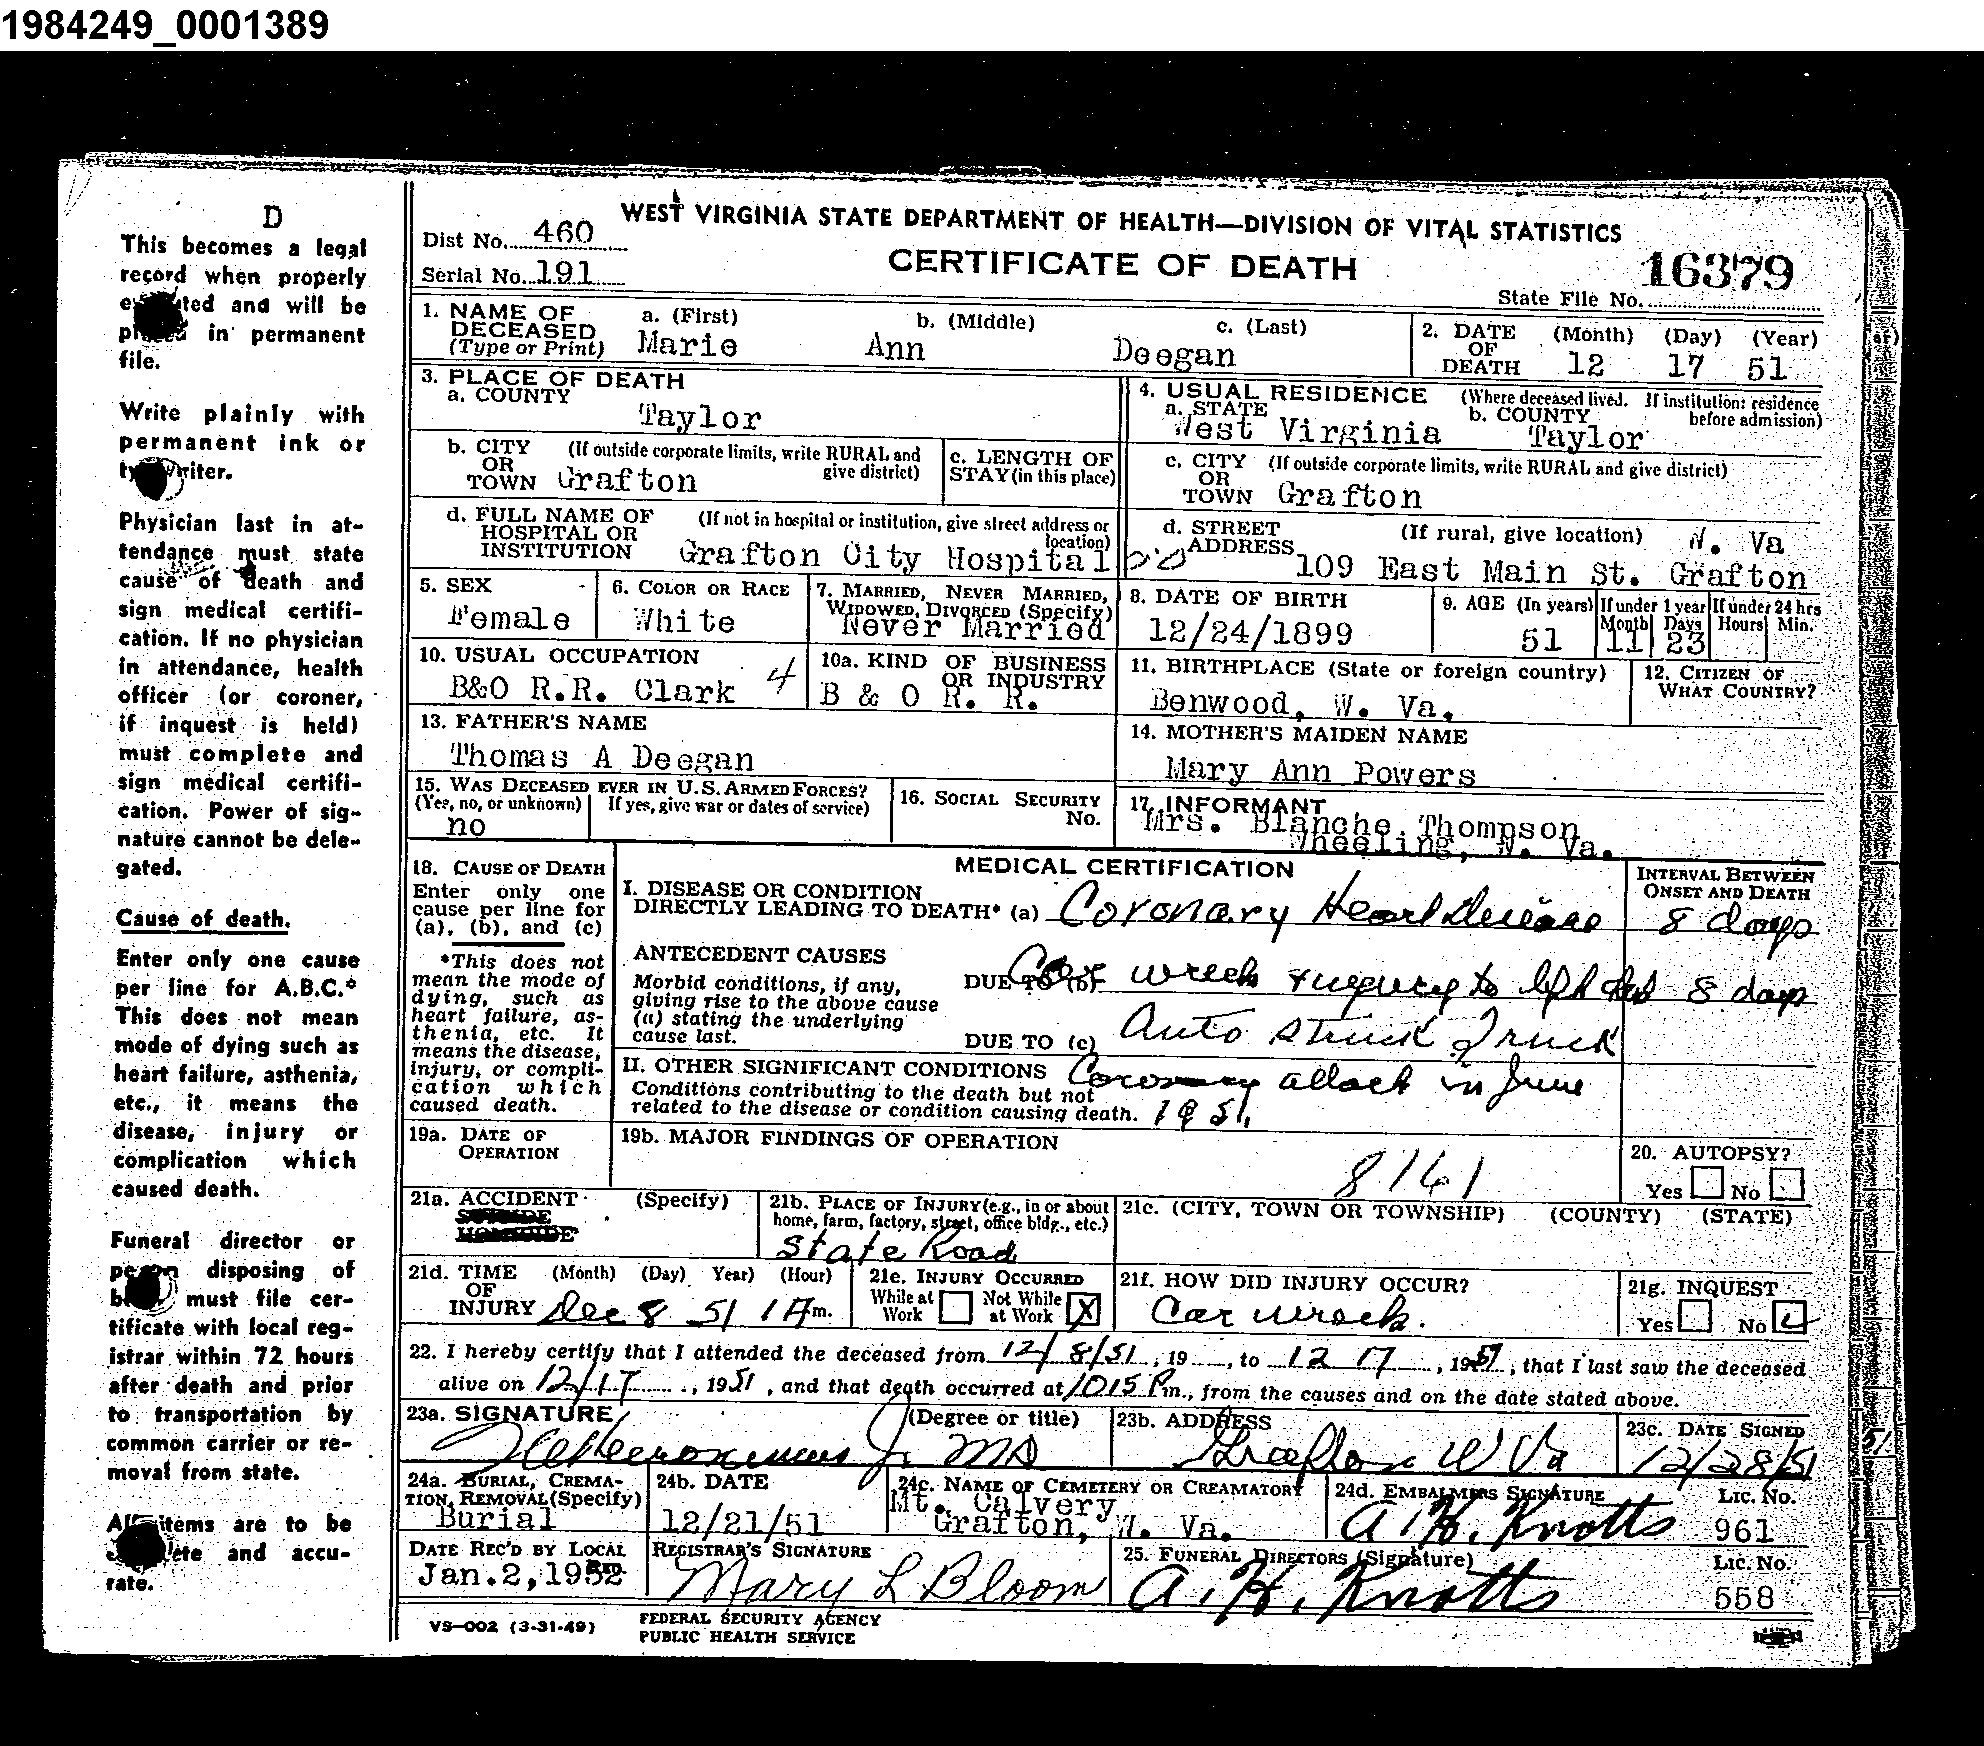 1984249_0001389
D
This becomes a legal
record when properly
ted and will be
in permanent
file.
Write plainly with
permanent ink or
writer.
Physician last in at-
tendance must state
cause of death and
sign medical certifi-
cation. If no physician
in attendance, health
officer (or coroner,
if inquest is held)
must complete and
sign medical certifi-
cation. Power of sig-
nature cannot be dele-
gated.
Cause of death.
Enter only one cause
per line for A.B.C.*
This does not mean
mode of dying such as
heart failure, asthenia,
etc., it means the
disease, injury or
complication which
caused death.
Funeral director or
person disposing of
must file cer-
tificate with local reg-
istrar within 72 hours
after death and prior
to transportation by
common carrier or re-
moval from state.
All items are to be
and accu-
rate.
WEST VIRGINIA STATE DEPARTMENT OF HEALTH—DIVISION OF VITAL STATISTICS
Dist No. 460
CERTIFICATE OF DEATH
Serial No. 191
16379
State File No.
1. NAME OF DECEASED (Type or Print) a. (First) Marie b. (Middle) Ann c. (Last) Deegan
2. DATE OF DEATH (Month) 12 (Day) 17 (Year) 51
3. PLACE OF DEATH
a. COUNTY Taylor
4. USUAL RESIDENCE (Where deceased lived. If institution: residence before admission)
a. STATE West Virginia b. COUNTY Taylor
b. CITY OR TOWN (If outside corporate limits, write RURAL and give district) Grafton
c. LENGTH OF STAY (in this place)
c. CITY OR TOWN (If outside corporate limits, write RURAL and give district) Grafton
d. FULL NAME OF HOSPITAL OR INSTITUTION (If not in hospital or institution, give street address or location) Grafton City Hospital
d. STREET ADDRESS (If rural, give location) W. Va
109 East Main St. Grafton
5. SEX Female
6. COLOR OR RACE White
7. MARRIED, NEVER MARRIED, WIDOWED, DIVORCED (Specify) Never Married
8. DATE OF BIRTH 12/24/1899
9. AGE (In years) 51 If under 1 year Month 11 Days 23 If under 24 hrs Hours Min.
10. USUAL OCCUPATION B&O R.R. Clark 4
10a. KIND OF BUSINESS OR INDUSTRY B & O R. R.
11. BIRTHPLACE (State or foreign country) Benwood, W. Va.
12. CITIZEN OF WHAT COUNTRY?
13. FATHER'S NAME Thomas A Deegan
14. MOTHER'S MAIDEN NAME Mary Ann Powers
15. WAS DECEASED EVER IN U.S. ARMED FORCES? (Yes, no, or unknown) no If yes, give war or dates of service)
16. SOCIAL SECURITY No.
17. INFORMANT Mrs. Blanche Thompson
Wheeling, W. Va.
18. CAUSE OF DEATH
Enter only one
cause per line for
(a), (b), and (c)
*This does not
mean the mode of
dying, such as
heart failure, as-
thenia, etc. It
means the disease,
injury, or compli-
cation which
caused death.
MEDICAL CERTIFICATION
INTERVAL BETWEEN ONSET AND DEATH
I. DISEASE OR CONDITION
DIRECTLY LEADING TO DEATH* (a) Coronary Heart Disease 8 days
ANTECEDENT CAUSES
Morbid conditions, if any,
giving rise to the above cause
(a) stating the underlying
cause last.
DUE TO (b) Car wreck & injury to left 8 days
DUE TO (c) Auto struck Truck
II. OTHER SIGNIFICANT CONDITIONS Coronary attack in June
Conditions contributing to the death but not
related to the disease or condition causing death. 1951.
19a. DATE OF OPERATION
19b. MAJOR FINDINGS OF OPERATION
8161
20. AUTOPSY?
Yes No
21a. ACCIDENT (Specify)
SUICIDE
HOMICIDE
21b. PLACE OF INJURY (e.g., in or about home, farm, factory, street, office bldg., etc.) State Road
21c. (CITY, TOWN OR TOWNSHIP) (COUNTY) (STATE)
21d. TIME OF INJURY (Month) (Day) Year) (Hour) Dec 8 51 1 A m.
21e. INJURY OCCURRED While at Work Not While at Work X
21f. HOW DID INJURY OCCUR? Car wreck.
21g. INQUEST Yes No
22. I hereby certify that I attended the deceased from 12/8/51, 19 , to 12 17 , 1951, that I last saw the deceased
alive on 12/17 , 1951, and that death occurred at 1015 P m., from the causes and on the date stated above.
23a. SIGNATURE (Degree or title) Jr MD
23b. ADDRESS Grafton W Va
23c. DATE SIGNED 12/28/51
24a. BURIAL, CREMATION, REMOVAL (Specify) Burial
24b. DATE 12/21/51
24c. NAME OF CEMETERY OR CREAMATORY Mt. Calvery
Grafton, W. Va.
24d. EMBALMERS SIGNATURE A. H. Knotts LIC. NO. 961
DATE REC'D BY LOCAL Jan. 2, 1952
REGISTRAR'S SIGNATURE Mary L Bloom
25. FUNERAL DIRECTORS (Signature) A. H. Knotts LIC. NO. 558
VS-002 (3-31-49)
FEDERAL SECURITY AGENCY
PUBLIC HEALTH SERVICE